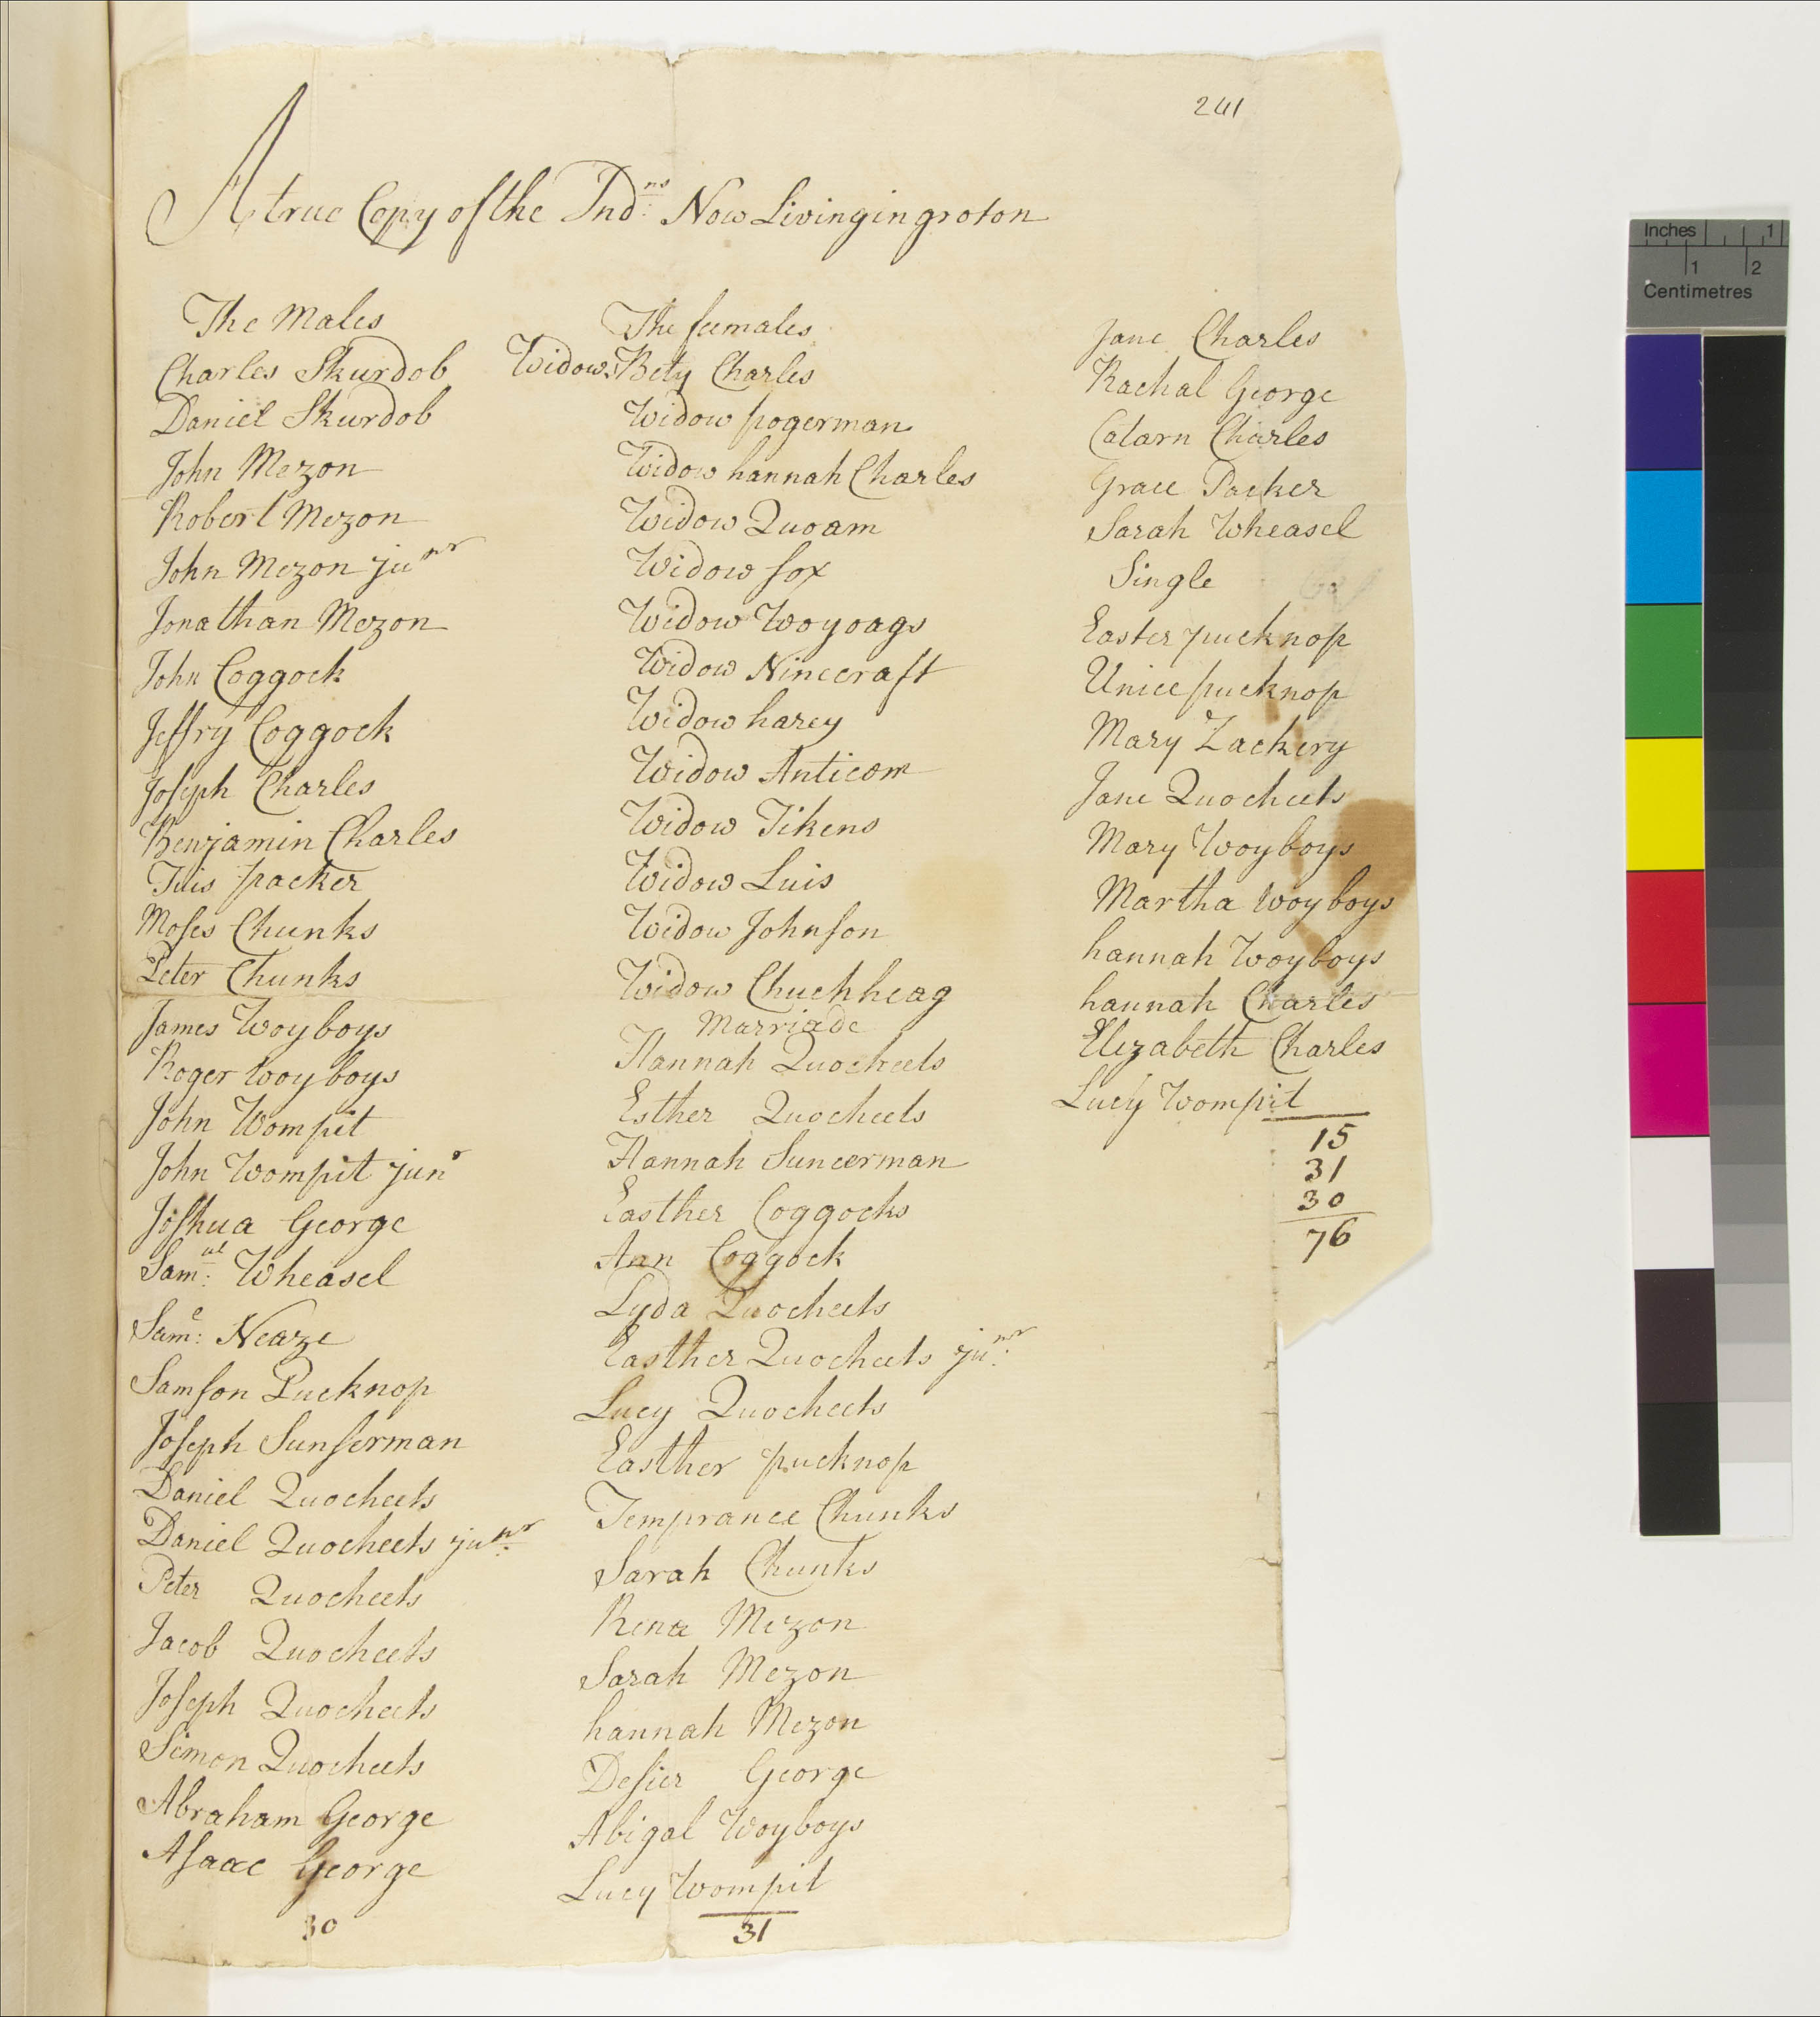 241
A true Copy of the Ind:ns Now Living in groton
The Males
Charles Skurdob
Daniel Skurdob
John Mezon
Robert Mezon
John Mezon junr
Jonathan Mezon
John Coggock
Jeffry Coggock
Joseph Charles
Benjamin Charles
Tuis packer
Moses Chunks
Peter Chunks
James Woyboys
Roger Woyboys
John Wompit
John Wompit junr
Joshua George
Sam:ul Wheasel
Sam:e Neaze
Samson Pucknop
Joseph Sunserman
Daniel Quocheets
Daniel Quocheets junr
Peter Quocheets
Jacob Quocheets
Joseph Quocheets
Simon Quocheets
Abraham George
Asaac George
30
The feemales
Widow Bety Charles
Widow pogerman
Widow hannah Charles
Widow Quoam
Widow fox
Widow Woyoags
Widow Ninecraft
Widow harey
Widow Anticom
Widow Tikens
Widow Luis
Widow Johnson
Widow Chuchheag
Marriade
Hannah Quocheets
Esther Quocheets
Hannah Suncerman
Easther Coggocks
Ann Coggock
Lyda Quocheets
Easther Quocheets junr
Lucy Quocheets
Easther pucknop
Temprance Chunks
Sarah Chunks
Rena Mezon
Sarah Mezon
hannah Mezon
Desier George
Abigal Woyboys
Lucy Wompit
31
Jane Charles
Rachal George
Catarn Charles
Grace Packer
Sarah Wheasel
Single
Easter pucknop
Unice pucknop
Mary Zackery
Jane Quocheets
Mary Woyboys
Martha Woyboys
hannah Woyboys
hannah Charles
Elizabeth Charles
Lucy Wompit
15
31
30
76
Inches 1
1 2
Centimetres